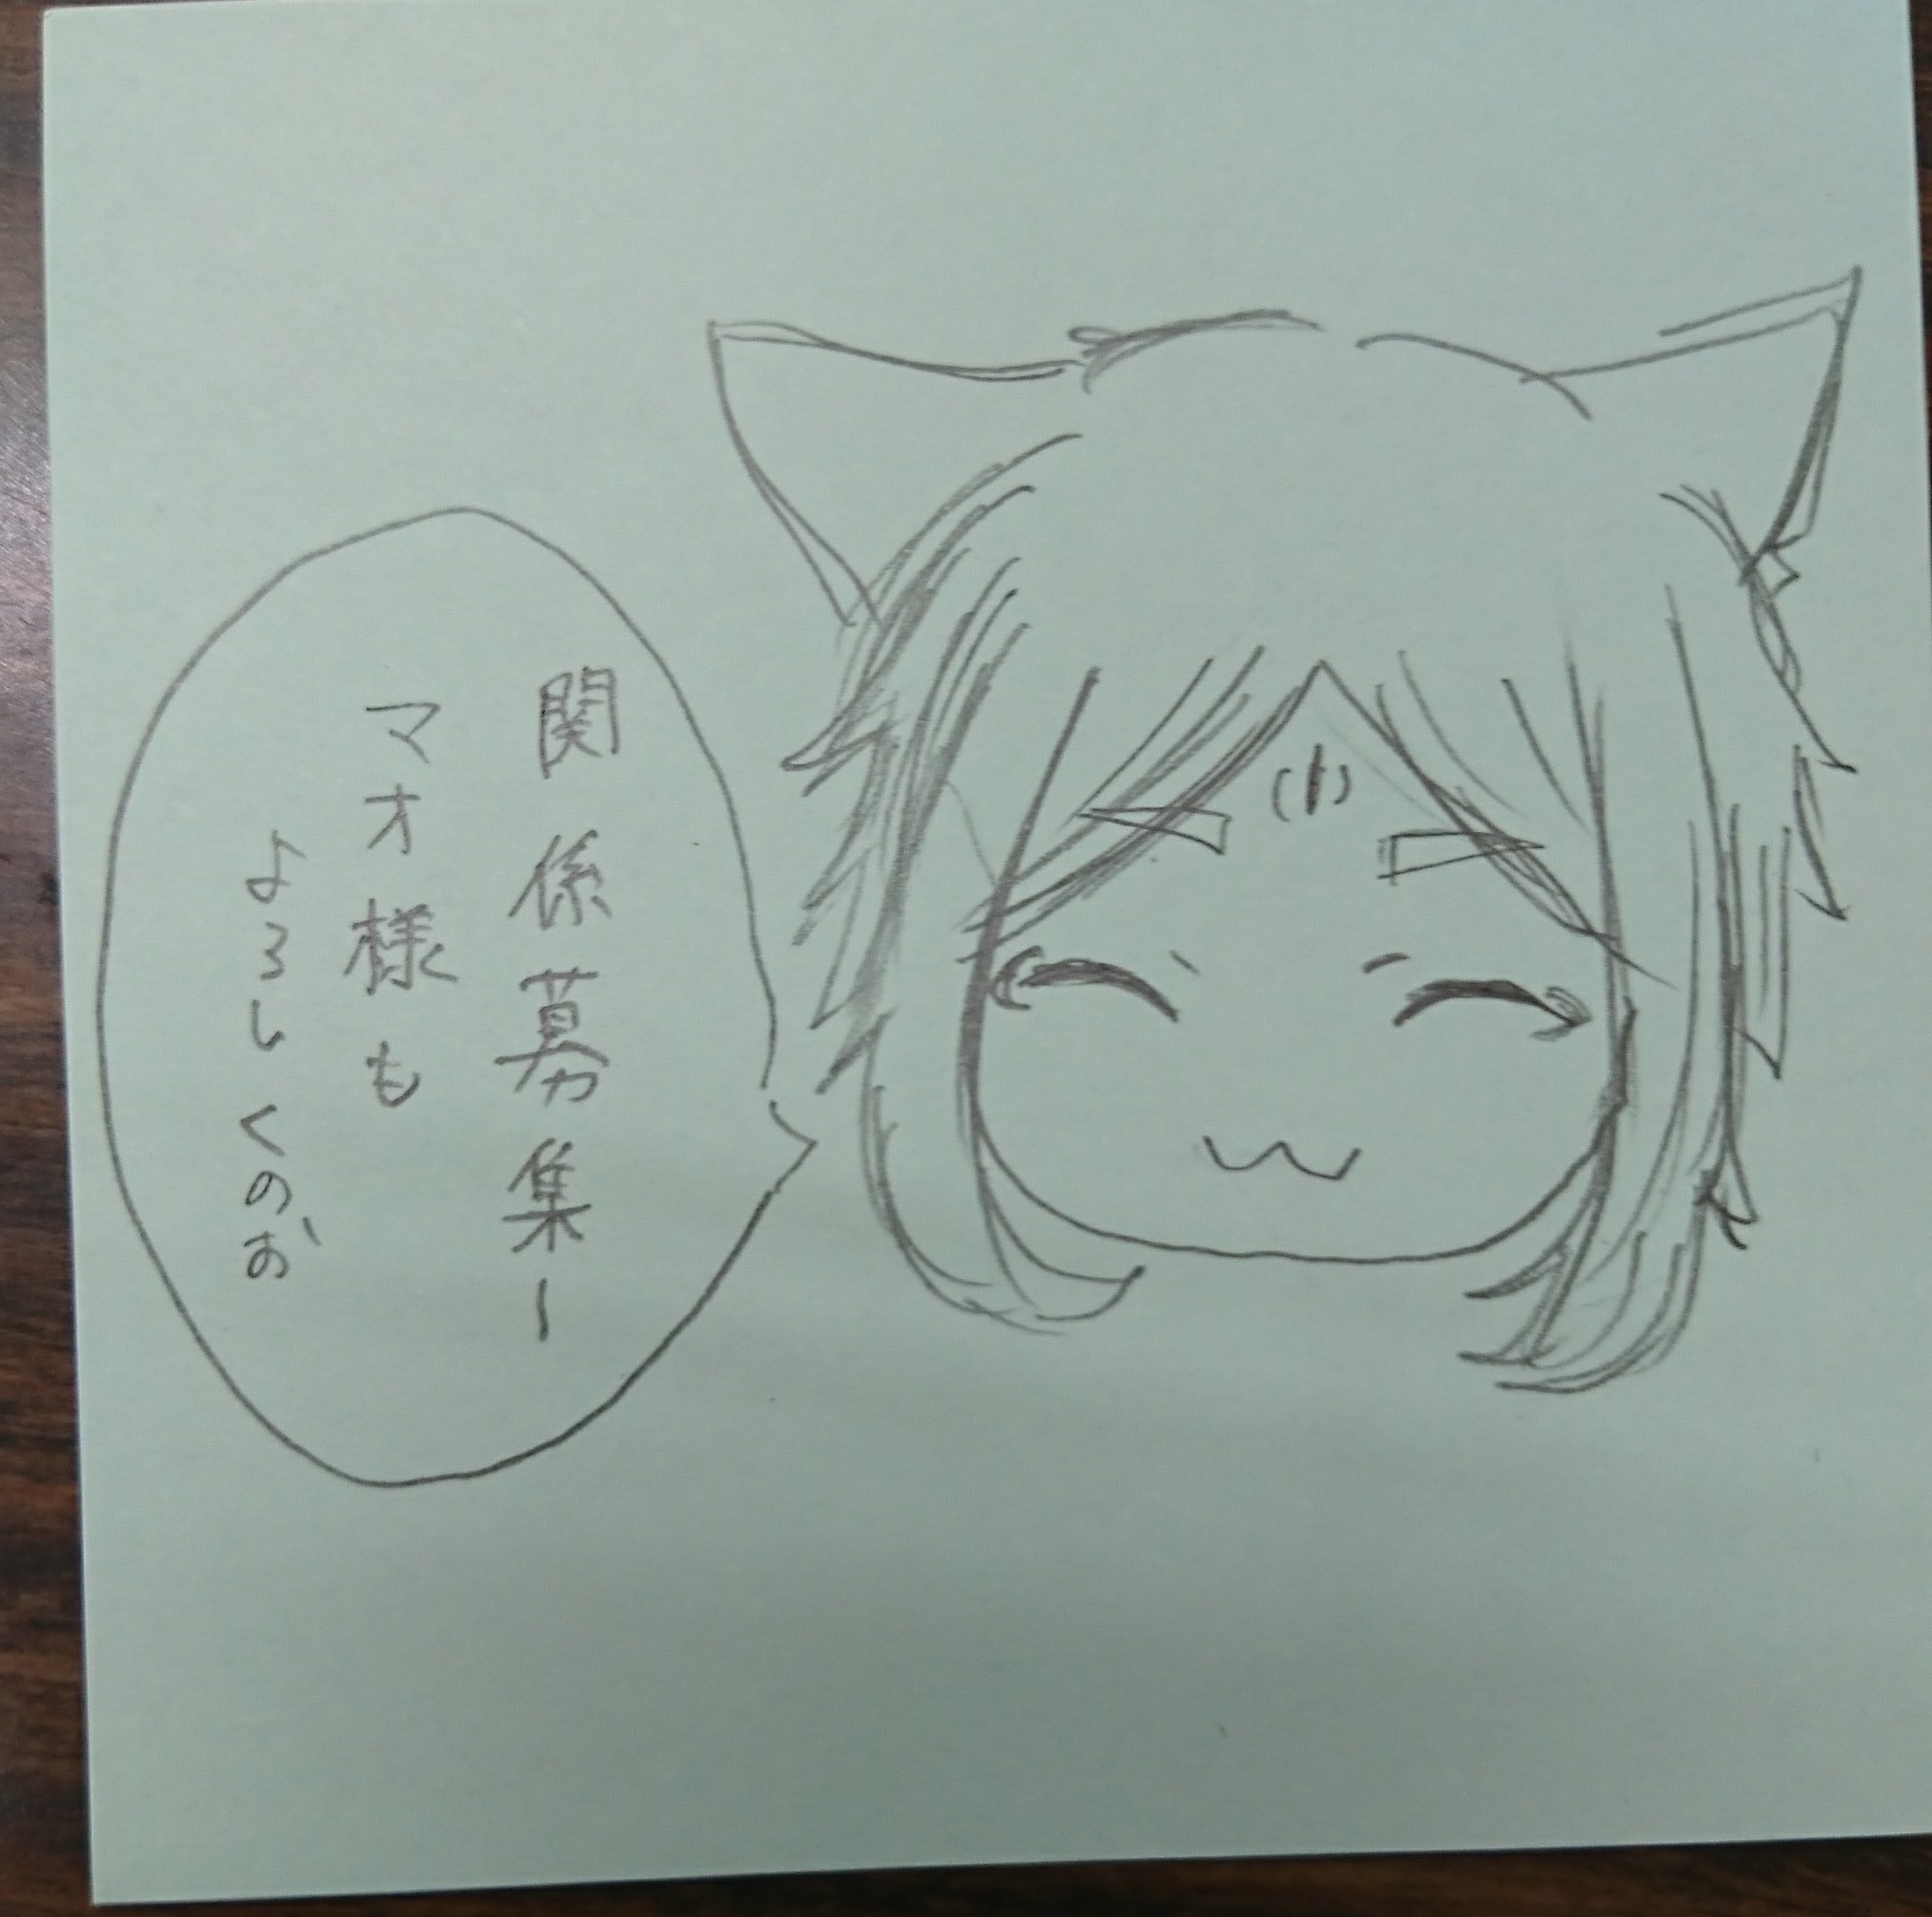 関係募集ー
マオ様も
よろしくのお